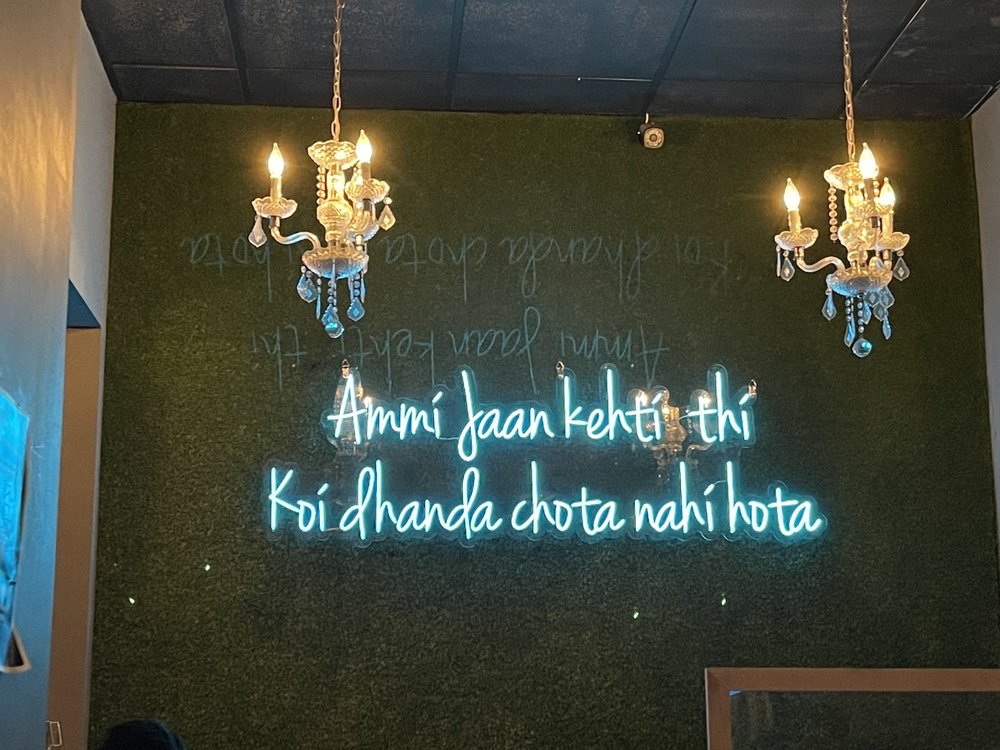 Ammi Jaan kehti thi
Koi dhanda chota nahi hota